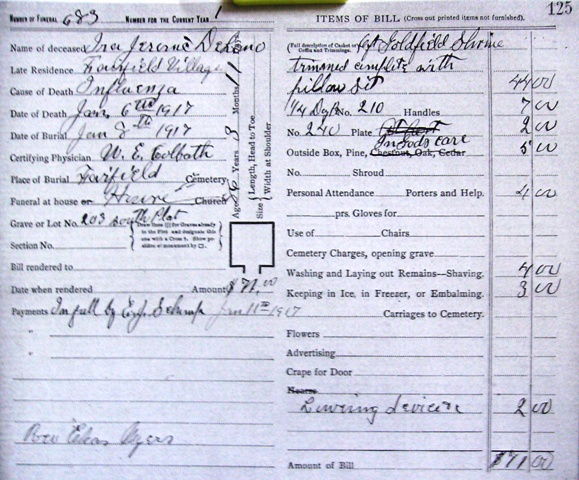 Number of Funeral 683 Number for the Current Year 1
Name of deceased Ira Jerome DeLano
Late Residence Fairfield Village
Cause of Death Influenza
Date of Death Jan 6th 1917
Date of Burial Jan 8th 1917
Certifying Physician W. E. Colbath
Place of Burial Fairfield Cemetery
Funeral at house or Home Church
Grave or Lot No. 203 South Plat
Draw lines for Graves already
in the Plot and designate this
one with a Cross X. Show position of monument by
Section No.
Bill rendered to
Date when rendered Amount $71.00
Payments In full by Jan 11th 1917
Rev Ayers
Age Years 8 Months 11
Size Length, Head to Toe.
Width at Shoulder
125
ITEMS OF BILL (Cross out printed items not furnished).
(Full description of Casket or Coffin and Trimmings. Goldfield Shrine
trimmed complete with
pillow set 44 00
1/4 No. 210 Handles 7 00
No. 240 Plate At Rest 2 00
In Gods care
Outside Box, Pine, Chestnut, Oak, Cedar 5 00
No. Shroud
Personal Attendance Porters and Help. 4 00
prs. Gloves for
Use of Chairs
Cemetery Charges, opening grave
Washing and Laying out Remains—Shaving. 4 00
Keeping in Ice, in Freezer, or Embalming. 3 00
Carriages to Cemetery.
Flowers
Advertising
Crape for Door
Hearse
Lowering device 2 00
Amount of Bill $71 00